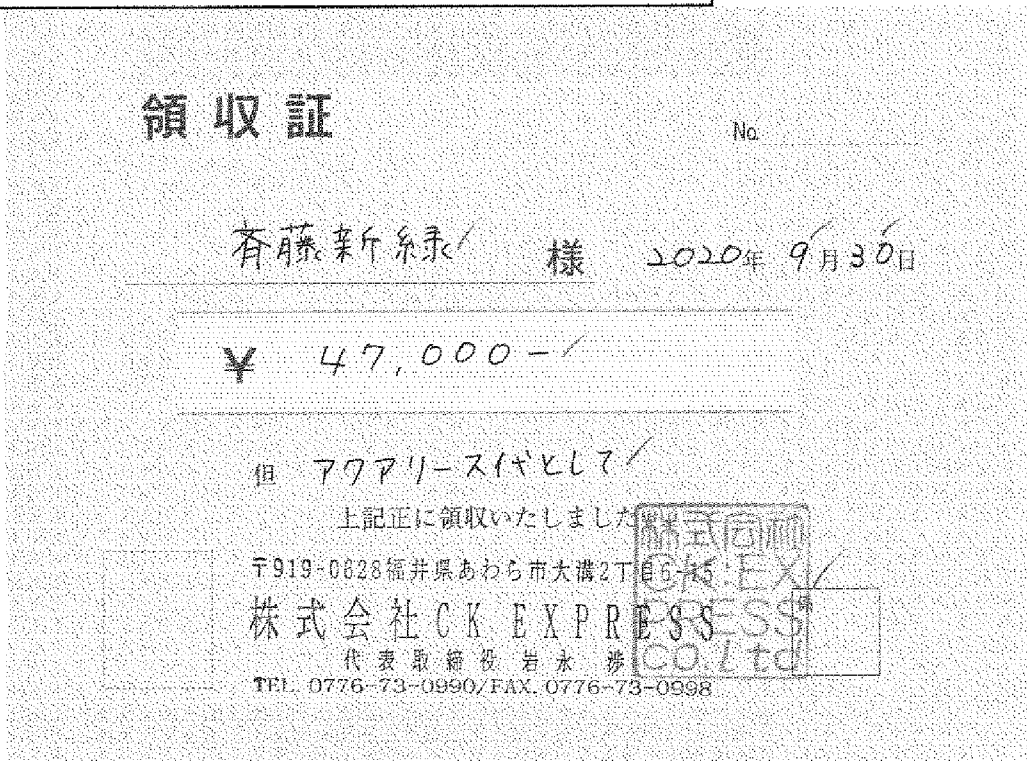 領収証
No.
斉藤新緑 様 2020年 9月30日
¥ 47,000-
但 アクアリース代として
上記正に領収いたしました
〒919-0628福井県あわら市大溝2丁目6-15
株式会社CK EXPRESS
代表取締役 岩永 渉
TEL. 0776-73-0990/FAX. 0776-73-0998
株式会社
CK.EX
PRESS
CO.Ltd
係